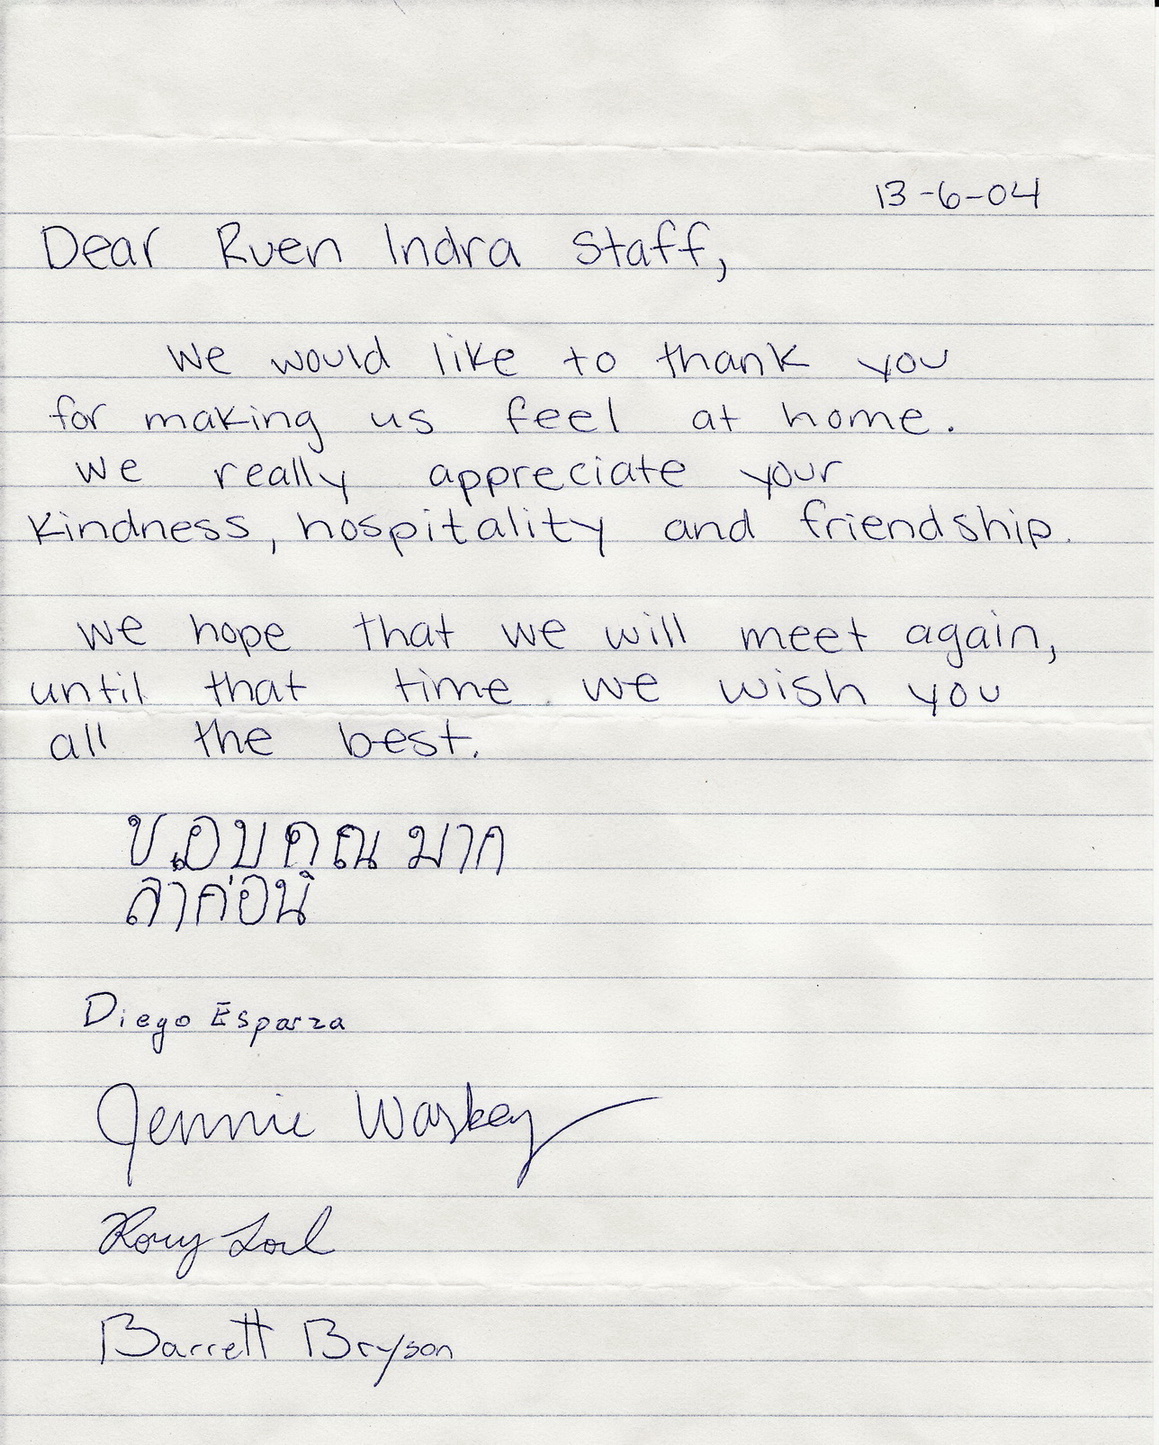 13-6-04
Dear Ruen Indra Staff,
We would like to thank you
for making us feel at home.
We really appreciate your
kindness, hospitality and friendship.
We hope that we will meet again,
until that time we wish you
all the best.
ขอบคุณ มาก
ลาก่อน
Diego Esparza
Jennie Waskey
Rory
Barrett Bryson